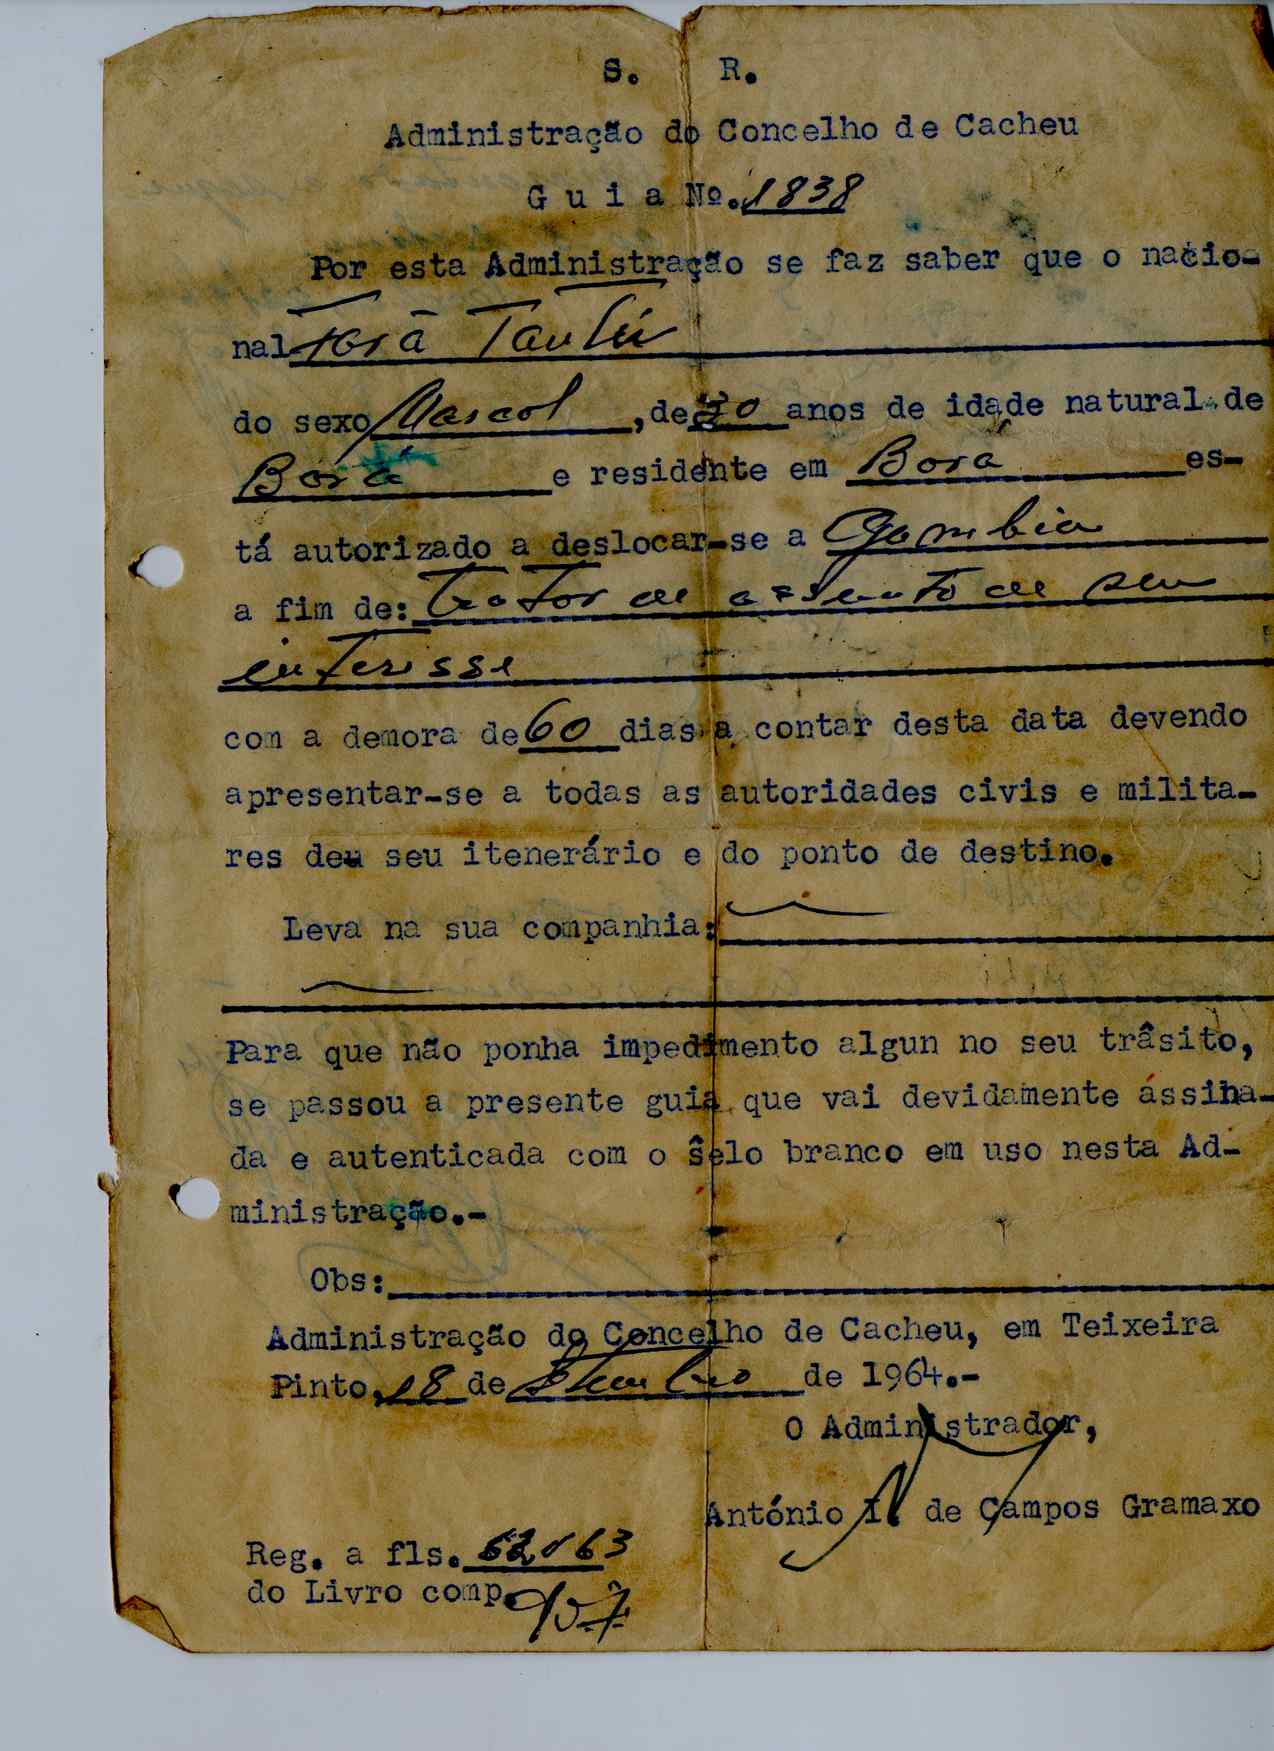 S. R.
Administração do Concelho de Cacheu
G u i a Nº. 1838
Por esta Administração se faz saber que o nacio-
nal
do sexo Mascol , de anos de idade natural de
Borá e residente em Bora es-
tá autorizado a deslocar-se a Gambia
a fim de: tratar de assunto de seu
interisse
com a demora de 60 dias a contar desta data devendo
apresentar-se a todas as autoridades civis e milita-
res deu seu itenerário e do ponto de destino.
Leva na sua companhia:
Para que não ponha impedimento algun no seu trâsito,
se passou a presente guia que vai devidamente ássina-
da e autenticada com o sêlo branco em uso nesta Ad-
ministração.-
Obs:
Administração do Concelho de Cacheu, em Teixeira
Pinto, 18 de de 1964.-
O Administrador,
António I. de Campos Gramaxo
Reg. a fls. 63
do Livro comp.